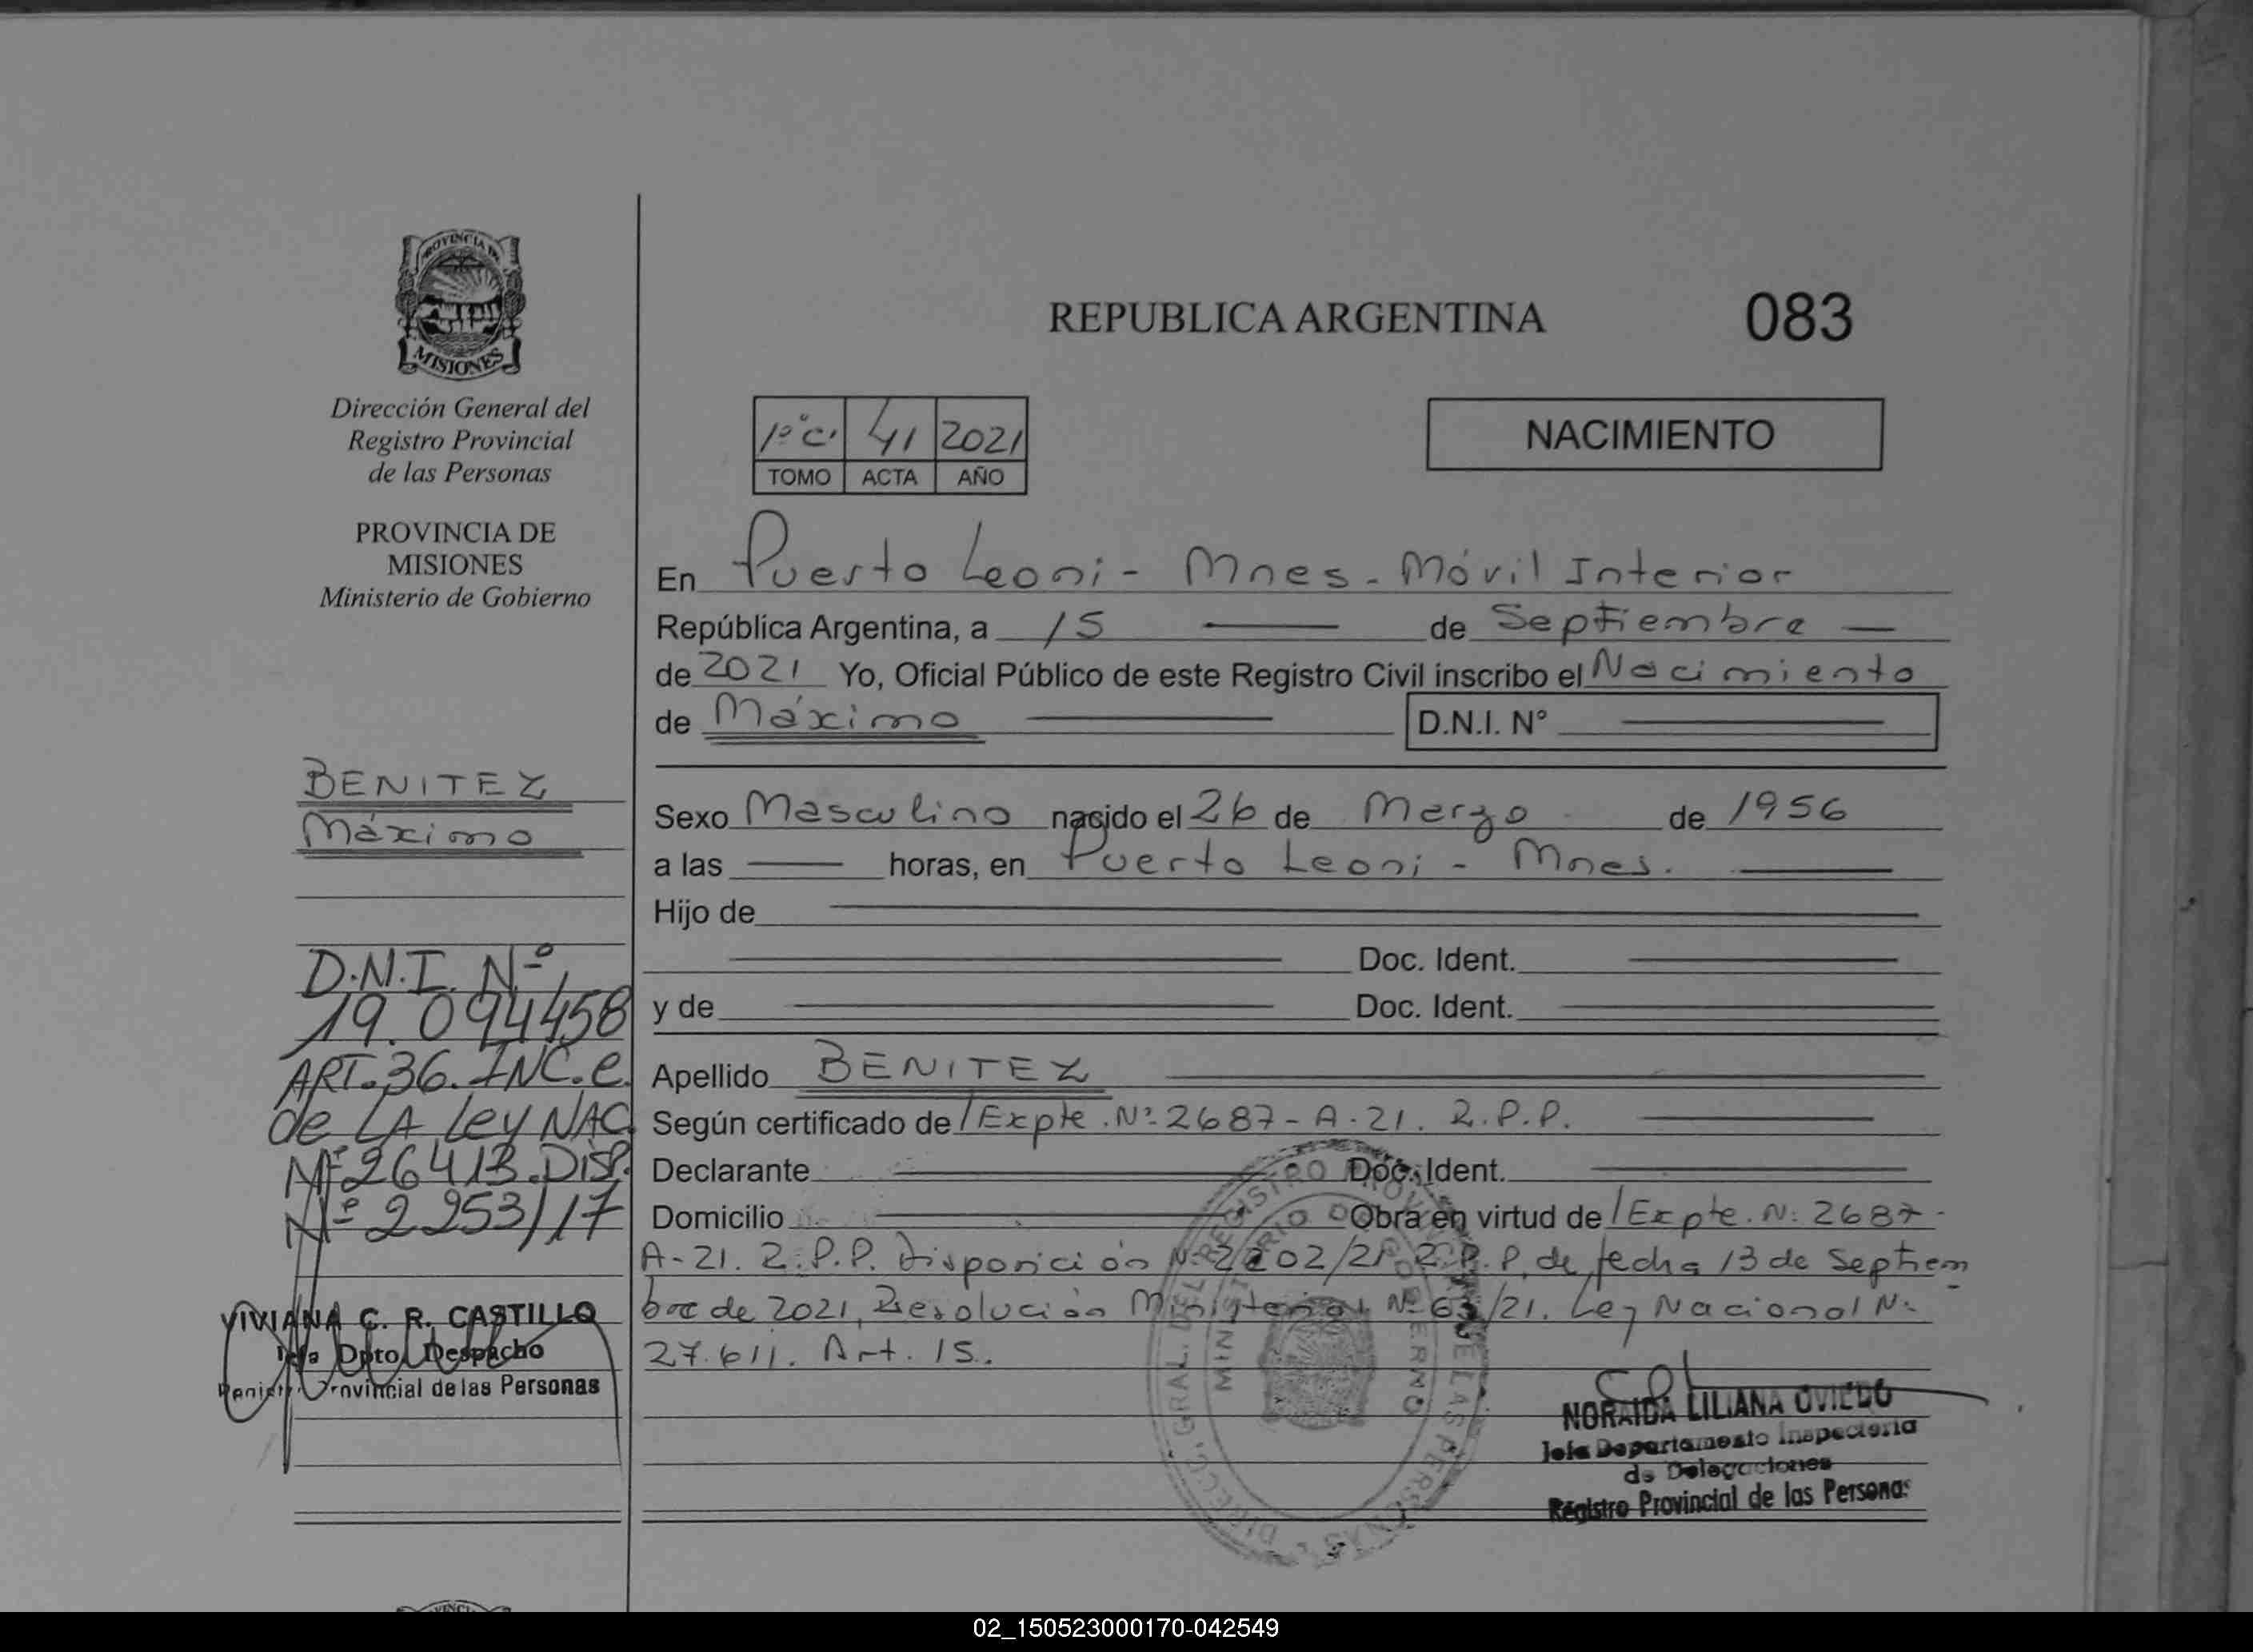 PROVINCIA DE
MISIONES
Dirección General del
Registro Provincial
de las Personas
PROVINCIA DE
MISIONES
Ministerio de Gobierno
BENITEZ
Máximo
D.N.I. Nº
19.094458
ART. 36. INC. e
de LA Ley NAC
Nº 26413. DISP.
Nº 2253/17
VIVIANA C. R. CASTILLO
Jefa Dpto. Despacho
Registro Provincial de las Personas
REPUBLICA ARGENTINA
083
1º C. 41 2021
TOMO ACTA AÑO
NACIMIENTO
En Puerto Leoni - Mnes. - Móvil Interior
República Argentina, a 15 de Septiembre
de 2021 Yo, Oficial Público de este Registro Civil inscribo el Nacimiento
de Máximo D.N.I. N°
Sexo Masculino nacido el 26 de Marzo de 1956
a las horas, en Puerto Leoni - Mnes.
Hijo de
Doc. Ident.
y de Doc. Ident.
Apellido BENITEZ
Según certificado de / Expte. Nº: 2687 - A - 21. R.P.P.
Declarante Doc. Ident.
Domicilio Obra en virtud de / Expte. N: 2687 -
A - 21. R.P.P. Disposición N: 2202/21 R.P.P. de fecha 13 de Septiem
bre de 2021, Resolución Ministerial Nº 63/21. Ley Nacional N:
27.611. Art. 15.
DIRECC. GRAL. DEL REGISTRO PROVINCIAL DE LAS PERSONAS
MINISTERIO DE GOBIERNO
NORAIDA LILIANA OVIEDO
Jefa Departamento Inspectoria
de Delegaciones
Registro Provincial de las Personas
02_150523000170-042549